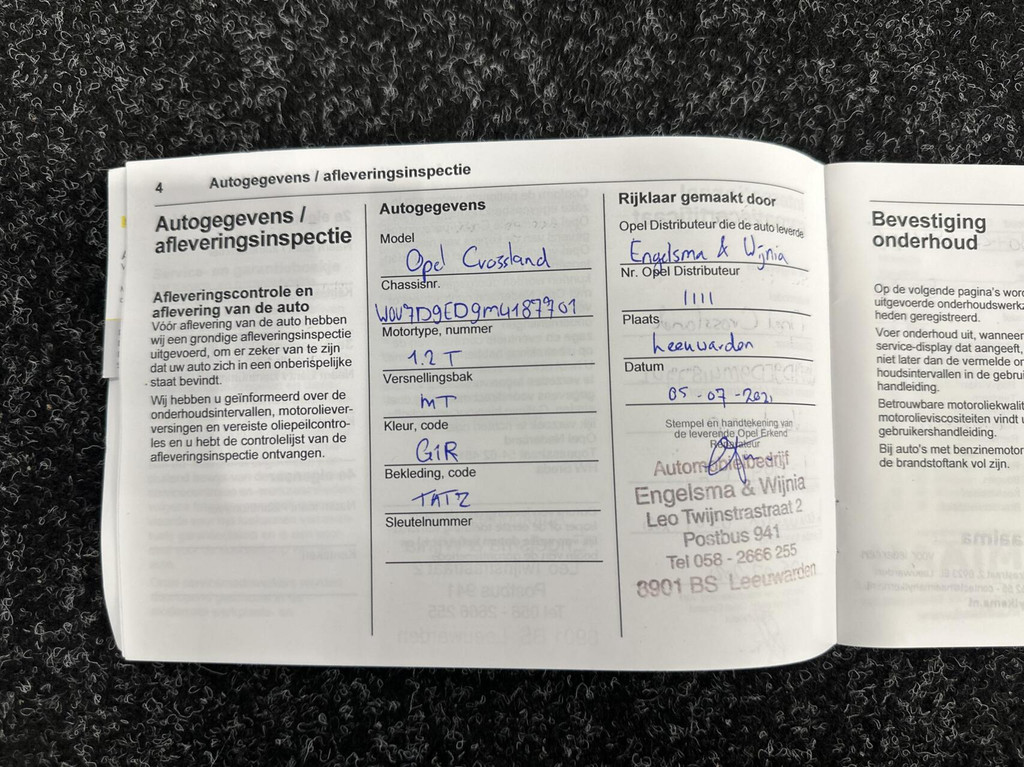 4 Autogegevens / afleveringsinspectie
Autogegevens /
afleveringsinspectie
Afleveringscontrole en
aflevering van de auto
Vóór aflevering van de auto hebben
wij een grondige afleveringsinspectie
uitgevoerd, om er zeker van te zijn
dat uw auto zich in een onberispelijke
staat bevindt.
Wij hebben u geïnformeerd over de
onderhoudsintervallen, motoroliever-
versingen en vereiste oliepeilcontro-
les en u hebt de controlelijst van de
afleveringsinspectie ontvangen.
Autogegevens
Model
Opel Crossland
Chassisnr.
W0V7D9ED9M4187701
Motortype, nummer
1.2 T
Versnellingsbak
MT
Kleur, code
G1R
Bekleding, code
TATZ
Sleutelnummer
Rijklaar gemaakt door
Opel Distributeur die de auto leverde
Engelsma & Wijnia
Nr. Opel Distributeur
1111
Plaats
Leeuwarden
Datum
05-07-2021
Stempel en handtekening van
de leverende Opel Erkend
Reparateur
Automobielbedrijf
Engelsma & Wijnia
Leo Twijnstrastraat 2
Postbus 941
Tel 058 - 2666 255
8901 BS Leeuwarden
Bevestiging
onderhoud
Op de volgende pagina's word
uitgevoerde onderhoudswerkz
heden geregistreerd.
Voer onderhoud uit, wanneer
service-display dat aangeeft,
niet later dan de vermelde on
houdsintervallen in de gebrui
handleiding.
Betrouwbare motoroliekwalit
motorolieviscositeiten vindt u
gebruikershandleiding.
Bij auto's met benzinemotor
de brandstoftank vol zijn.